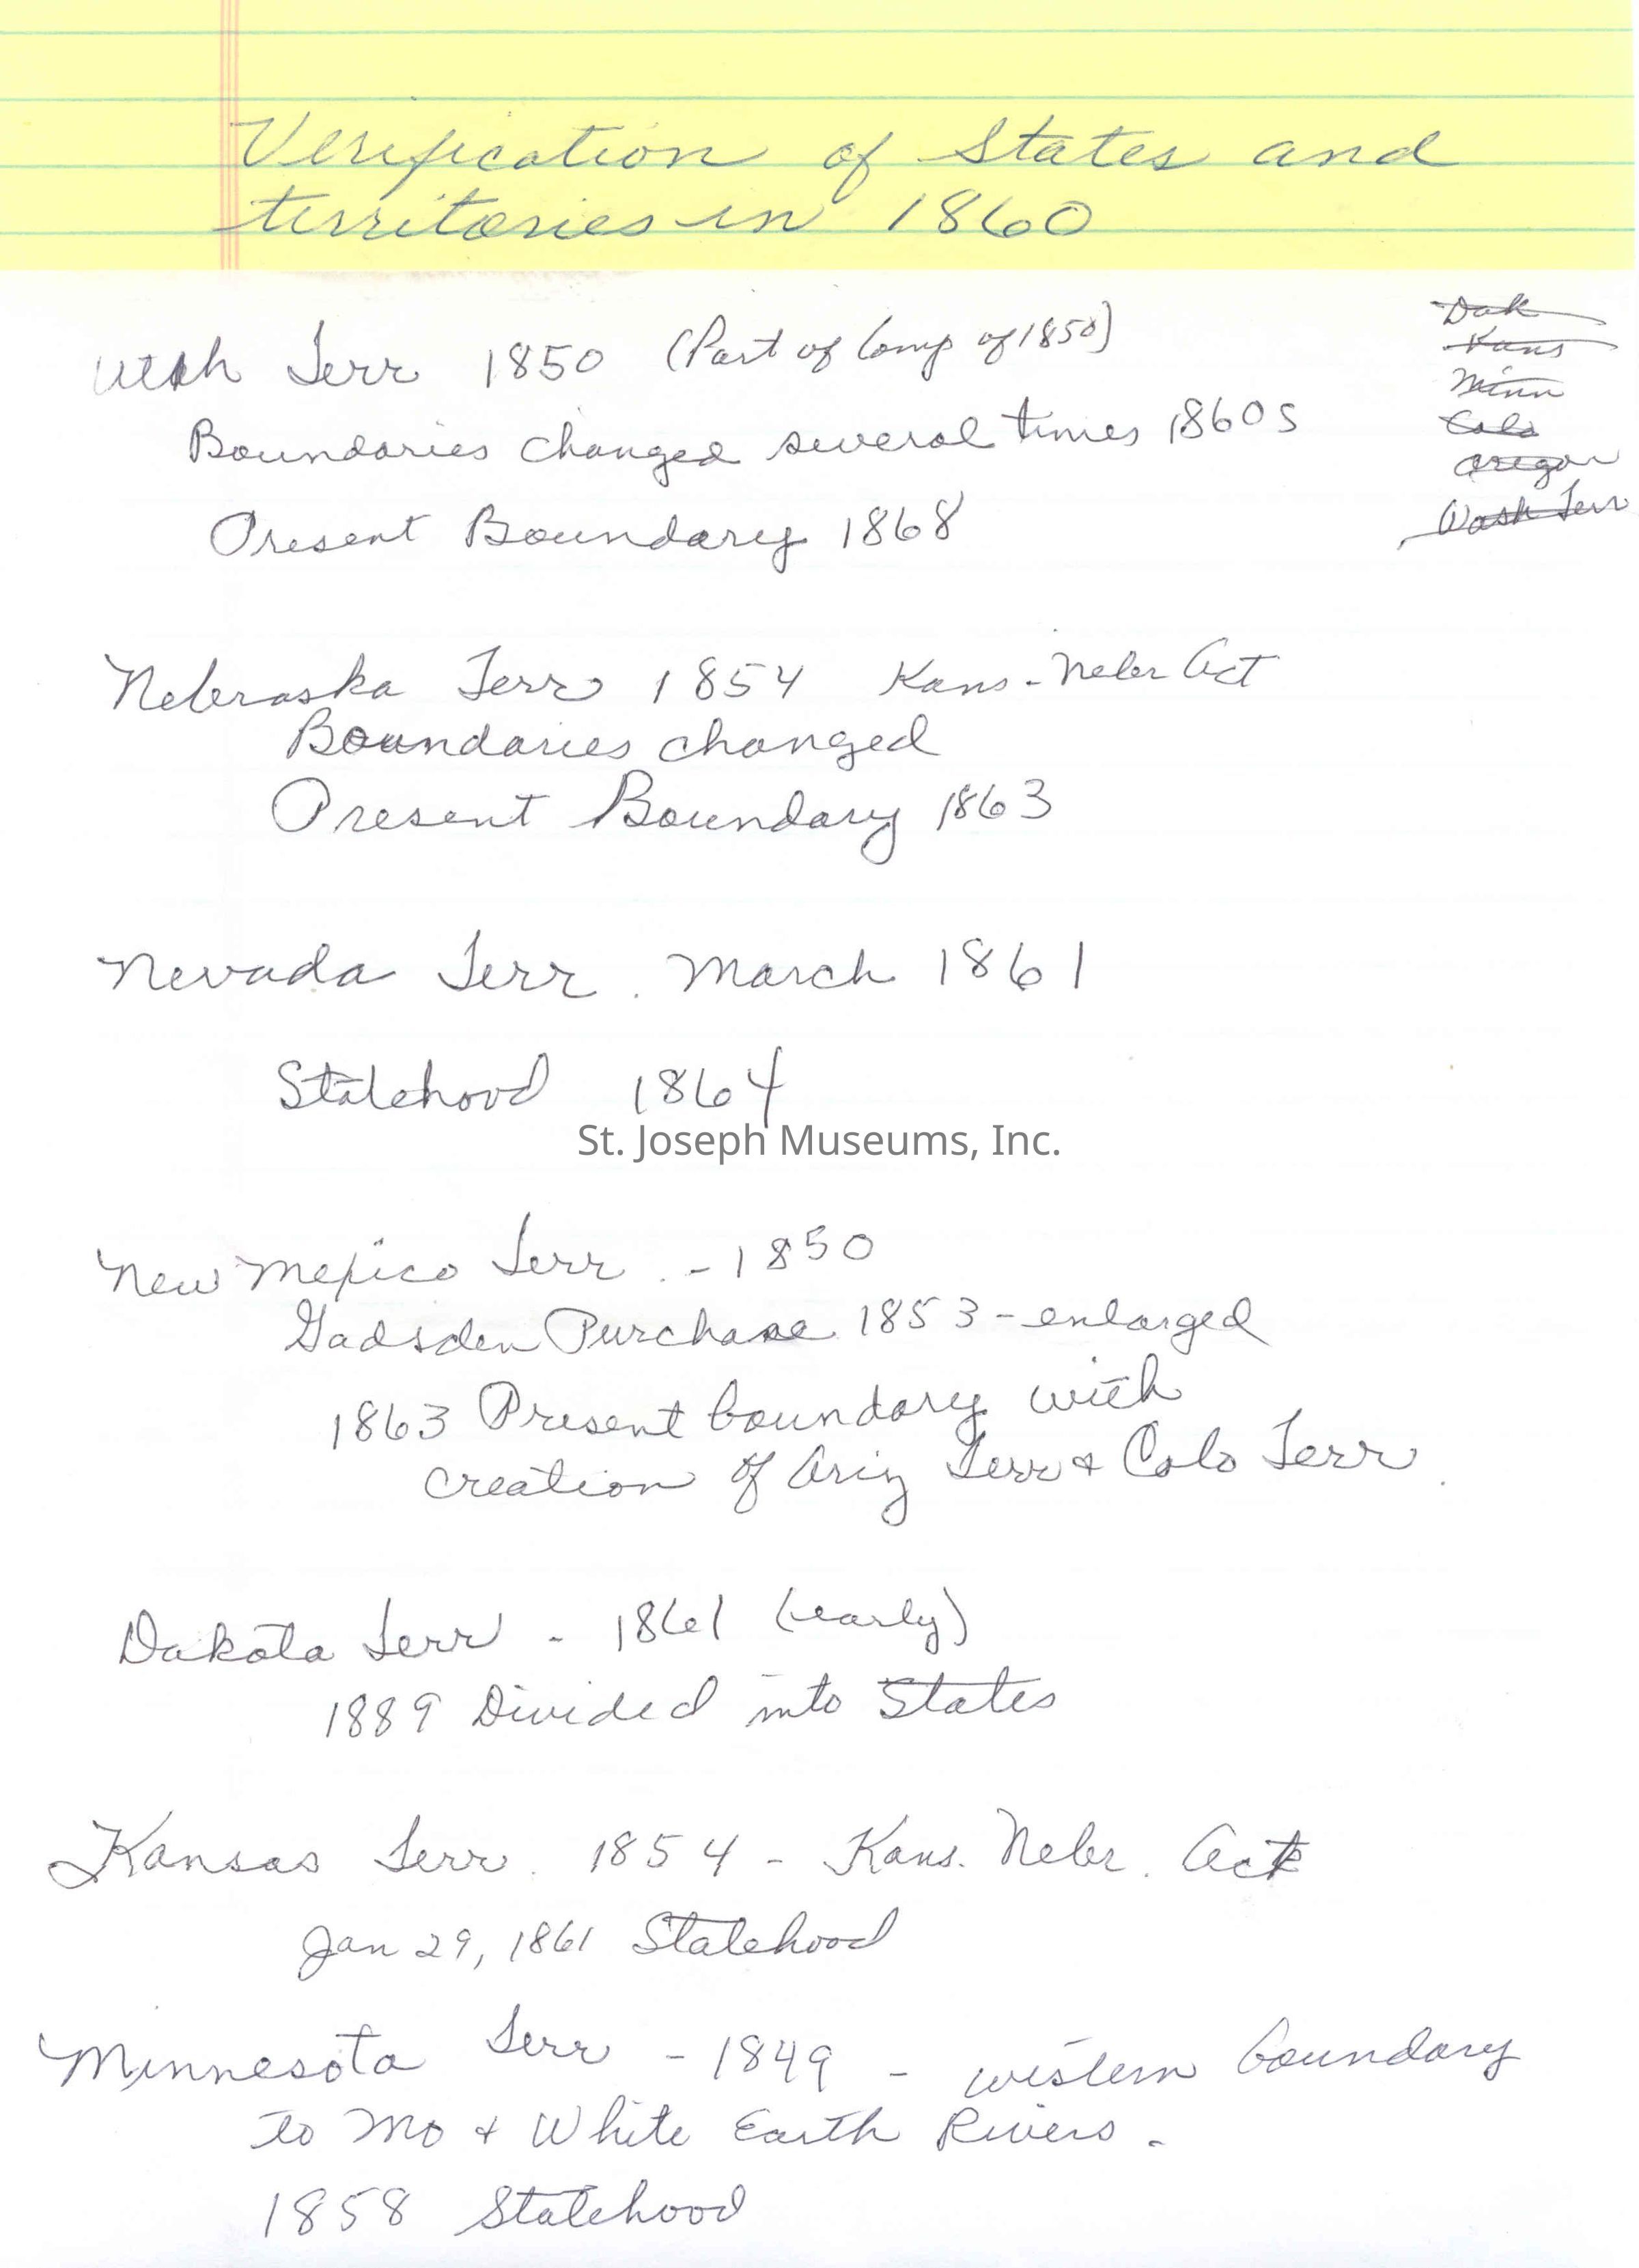 Verification of States and
territories in 1860
Utah Terr 1850 (Part of Comp of 1850)
Boundaries changed several times 1860s
Present Boundary 1868
Dak
Kans
Minn
Colo
Oregon
Wash Terr
Nebraska Terr 1854 Kans-Nebr Act
Boundaries changed
Present Boundary 1863
Nevada Terr. March 1861
Statehood 1864
St. Joseph Museums, Inc.
New Mexico Terr. - 1850
Gadsden Purchase 1853 - enlarged
1863 Present boundary with
creation of Ariz Terr & Colo Terr.
Dakota Terr - 1861 (early)
1889 Divided into States
Kansas Terr. 1854 - Kans. Nebr. Act
Jan 29, 1861 Statehood
Minnesota Terr - 1849 - western boundary
to Mo & White Earth Rivers.
1858 Statehood